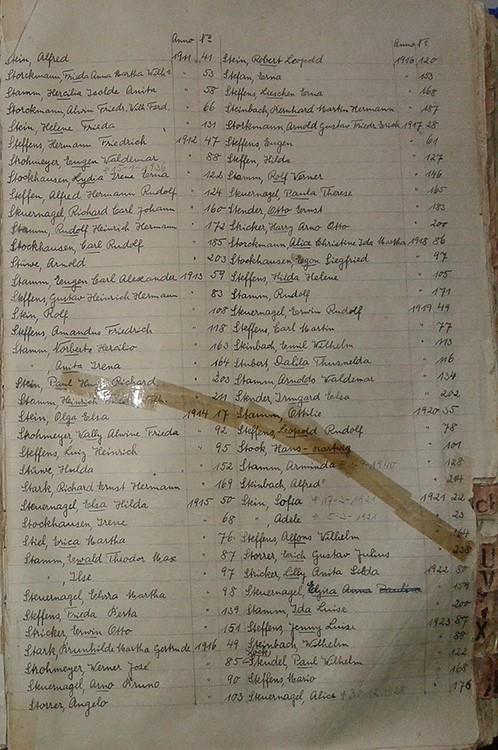 Anno Nº
Stein, Alfred 1911 41
Storckmann, Frieda Anna Martha Wilh. " 53
Stamm, Hercilia Isolde Anita " 58
Storckmann, Alwin Friedr. Wilh. Ferd. " 66
Stein, Helene Frieda " 131
Steffens, Hermann Friedrich 1912 47
Strohmeyer, Eugen Waldemar " 88
Stockhausen, Lydia Irene Erna " 122
Steffen, Alfred Hermann Rudolf " 124
Steuernagel, Richard Carl Johann " 160
Stamm, Rudolf Heinrich Hermann " 172
Stockhausen, Carl Rudolf " 185
Stüwe, Arnold " 203
Stamm, Eugen Carl Alexander 1913 59
Steffens, Gustav Heinrich Hermann " 83
Stein, Rolf " 108
Steffens, Amandus Friedrich " 118
Stamm, Norberto Hercilio " 163
" , Anita Irena " 164
Stein, Paul Richard " 203
Stamm, Heinrich " 211
Stein, Olga Elsa 1914 17
Strohmeyer, Wally Alwine Frieda " 92
Steffens, Luiz Heinrich " 95
Stüwe, Hulda " 152
Stark, Richard Ernst Hermann " 169
Steuernagel, Elsa Hilda 1915 50
Stockhausen, Irene " 68
Stiel, Erica Martha " 76
Stamm, Ewald Theodor Max " 87
" , Ilse " 97
Steuernagel, Martha " 98
Steffens, Frieda Berta " 139
Stricker, Erwin Otto " 151
Stark, Brunhilde Martha Gertrude 1916 49
Strohmeyer, Werner José " 85
Steuernagel, Arno Bruno " 90
Storrer, Angelo " 103
Anno Nº
Stein, Robert Leopold 1916 120
Stefan, Erna " 153
Steffens, Lieschen Erna " 168
Steinbach, Bernhard Martin Hermann " 187
Storckmann, Arnold Gustav Friedr. Erich 1917 28
Steffens, Eugen " 61
Steffen, Hilda " 127
Stamm, Rolf Werner " 146
Steuernagel, Paula Therese " 165
Stender, Otto Ernst " 183
Stricker, Harry Arno Otto " 200
Storckmann, Alice Christine Ida Martha 1918 86
Stockhausen, Egon Siegfried " 97
Steffens, Hilda Helene " 105
Stamm, Rudolf " 171
Steuernagel, Erwin Rudolf 1919 49
Steffens, Carl Martin " 77
Steinbach, Emil Wilhelm " 113
Stubert, Dalila Thusnelda " 116
Stamm, Arnoldo Waldemar " 134
Stender, Irmgard Elsa " 202
Stamm, Ottilie 1920 35
Steffens, Leopold Rudolf " 78
Stock, Hans " 101
Stamm, Arminda " 128
Steinbach, Alfred 204
Stein, Sofia 1921 22
" , Adele " 23
Steffens, Alfons Wilhelm 164
Storrer, Erich Gustav Julius 238
Stricker, Lilly Anita Silda 1922 80
Steuernagel, Elvira Anna Paulina " 159
Stamm, Ida Luise " 200
Steffens, Jenny Luise 1923 87
Steinbach, Wilhelm " 88
Stendel, Paul Wilhelm " 122
Steffens, Mario " 168
Steuernagel, Alice " 176